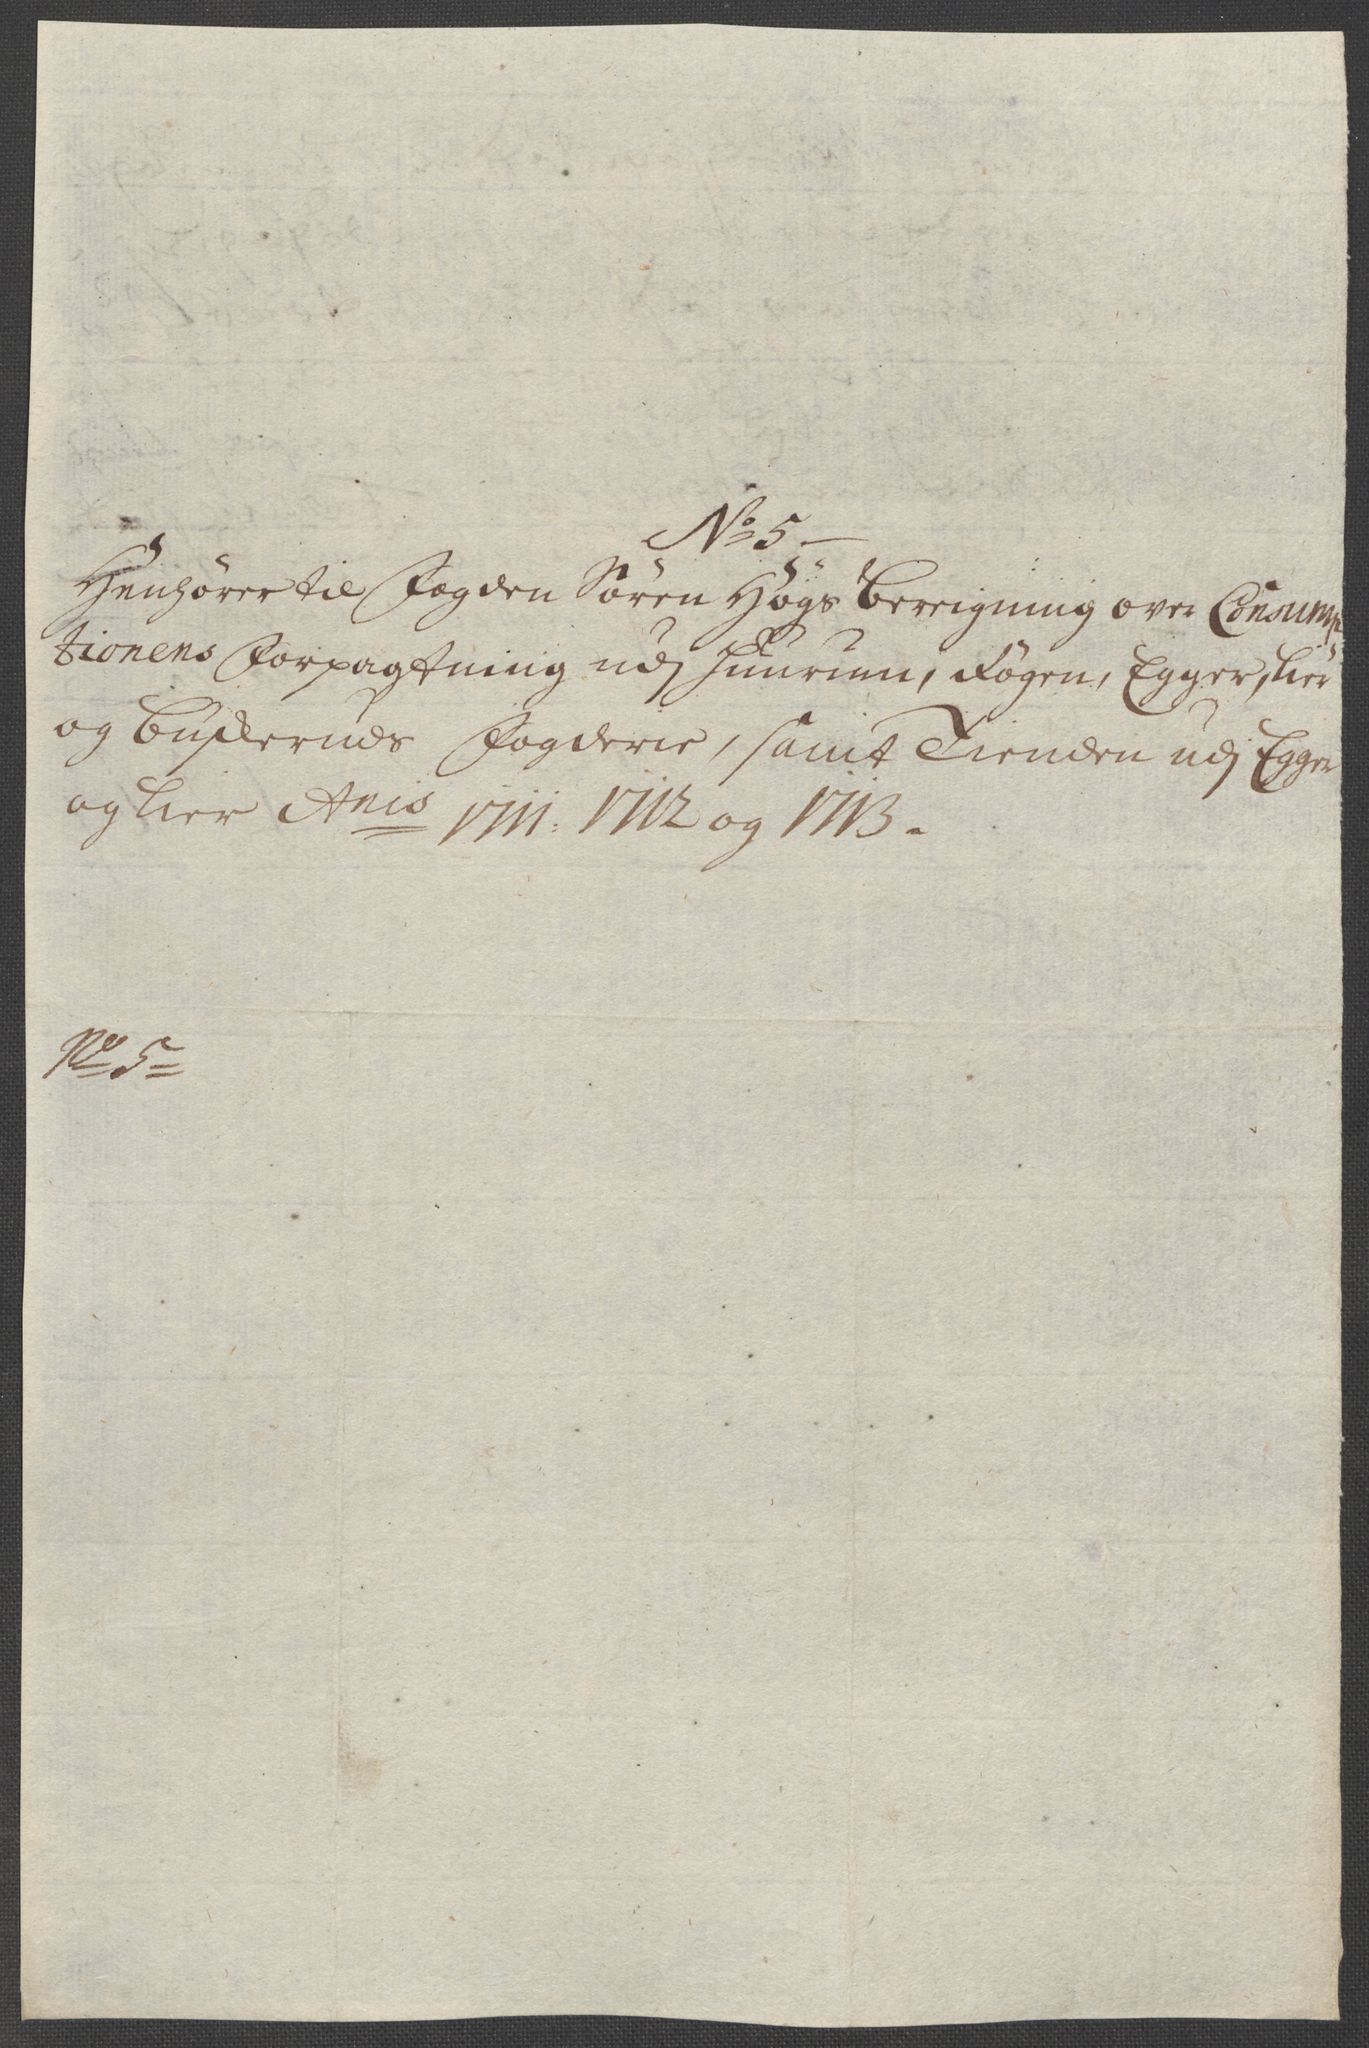 No 5 —
Henhörer til Fogden Sören Högs bereigning over Consump
tionens Forpagtning udj Huurum, Rögen, Egger, Lier
og buskeruds Fogderie, samt Tienden udj Egger
og Lier Anis 1711: 1712 og 1713.
No 5=